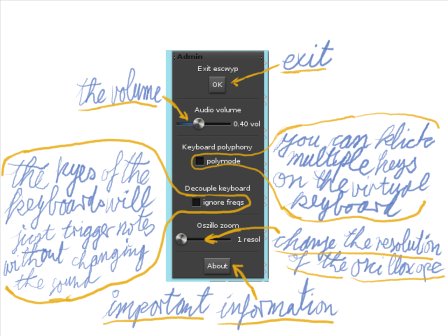 Admin
Exit escwyp
OK
exit
the volume
Audio volume
0.40 vol
Keyboard polyphony
polymode
you can klick
multiple keys
on the virtual
keyboard
the kyes of the
keyboards will
just trigger notes
without changing
the sound
Decouple keyboard
ignore freqs
Oszillo zoom
1 resol
change the resolution
of the oscilloscope
About
important information